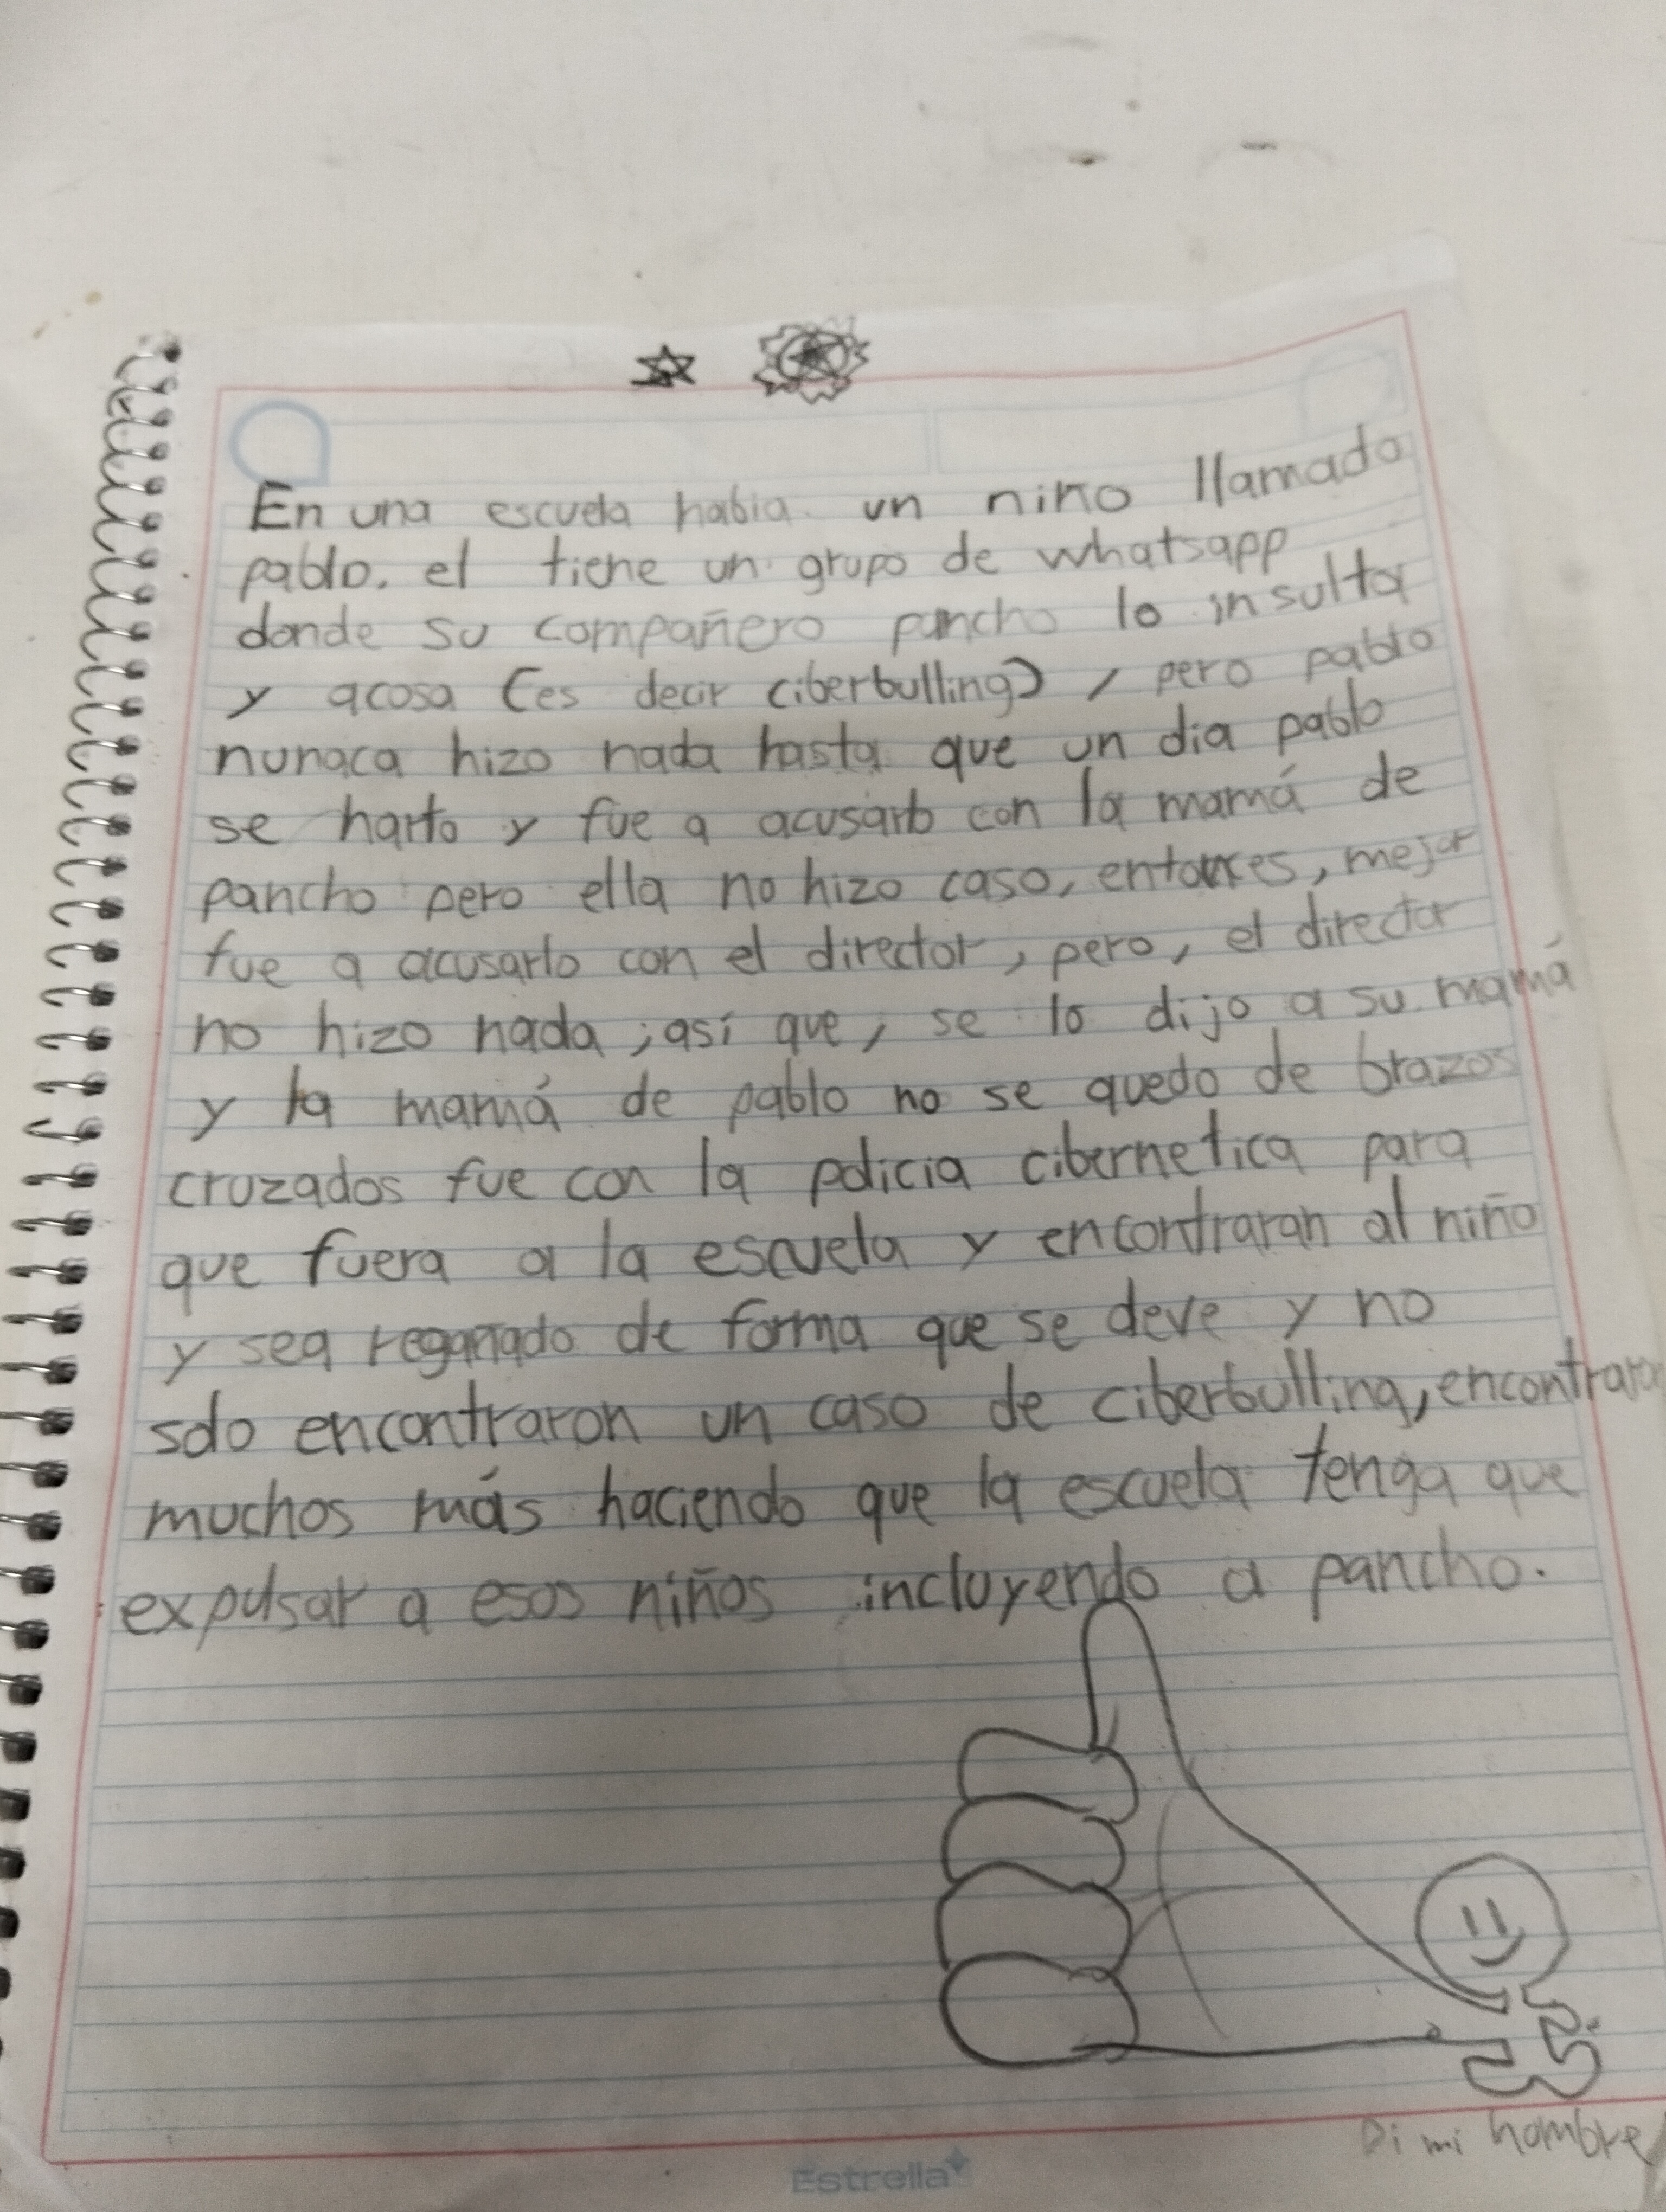 En una escuela habia un niño llamado
pablo. el tiene un grupo de whatsapp
donde su compañero pancho lo insulta
y acosa (es decir ciberbulling), pero pablo
nunaca hizo nada hasta que un dia pablo
se harto y fue a acusarlo con la mamá de
pancho pero ella no hizo caso, entonces, mejor
fue a acusarlo con el director, pero, el director
no hizo nada; así que, se lo dijo a su mamá
y la mamá de pablo no se quedo de brazos
cruzados fue con la policia cibernetica para
que fuera a la escuela y encontraran al niño
y sea regañado de forma que se deve y no
solo encontraron un caso de ciberbulling, encontraron
muchos más haciendo que la escuela tenga que
expulsar a esos niños incluyendo a pancho.
Di mi nombre
Estrella